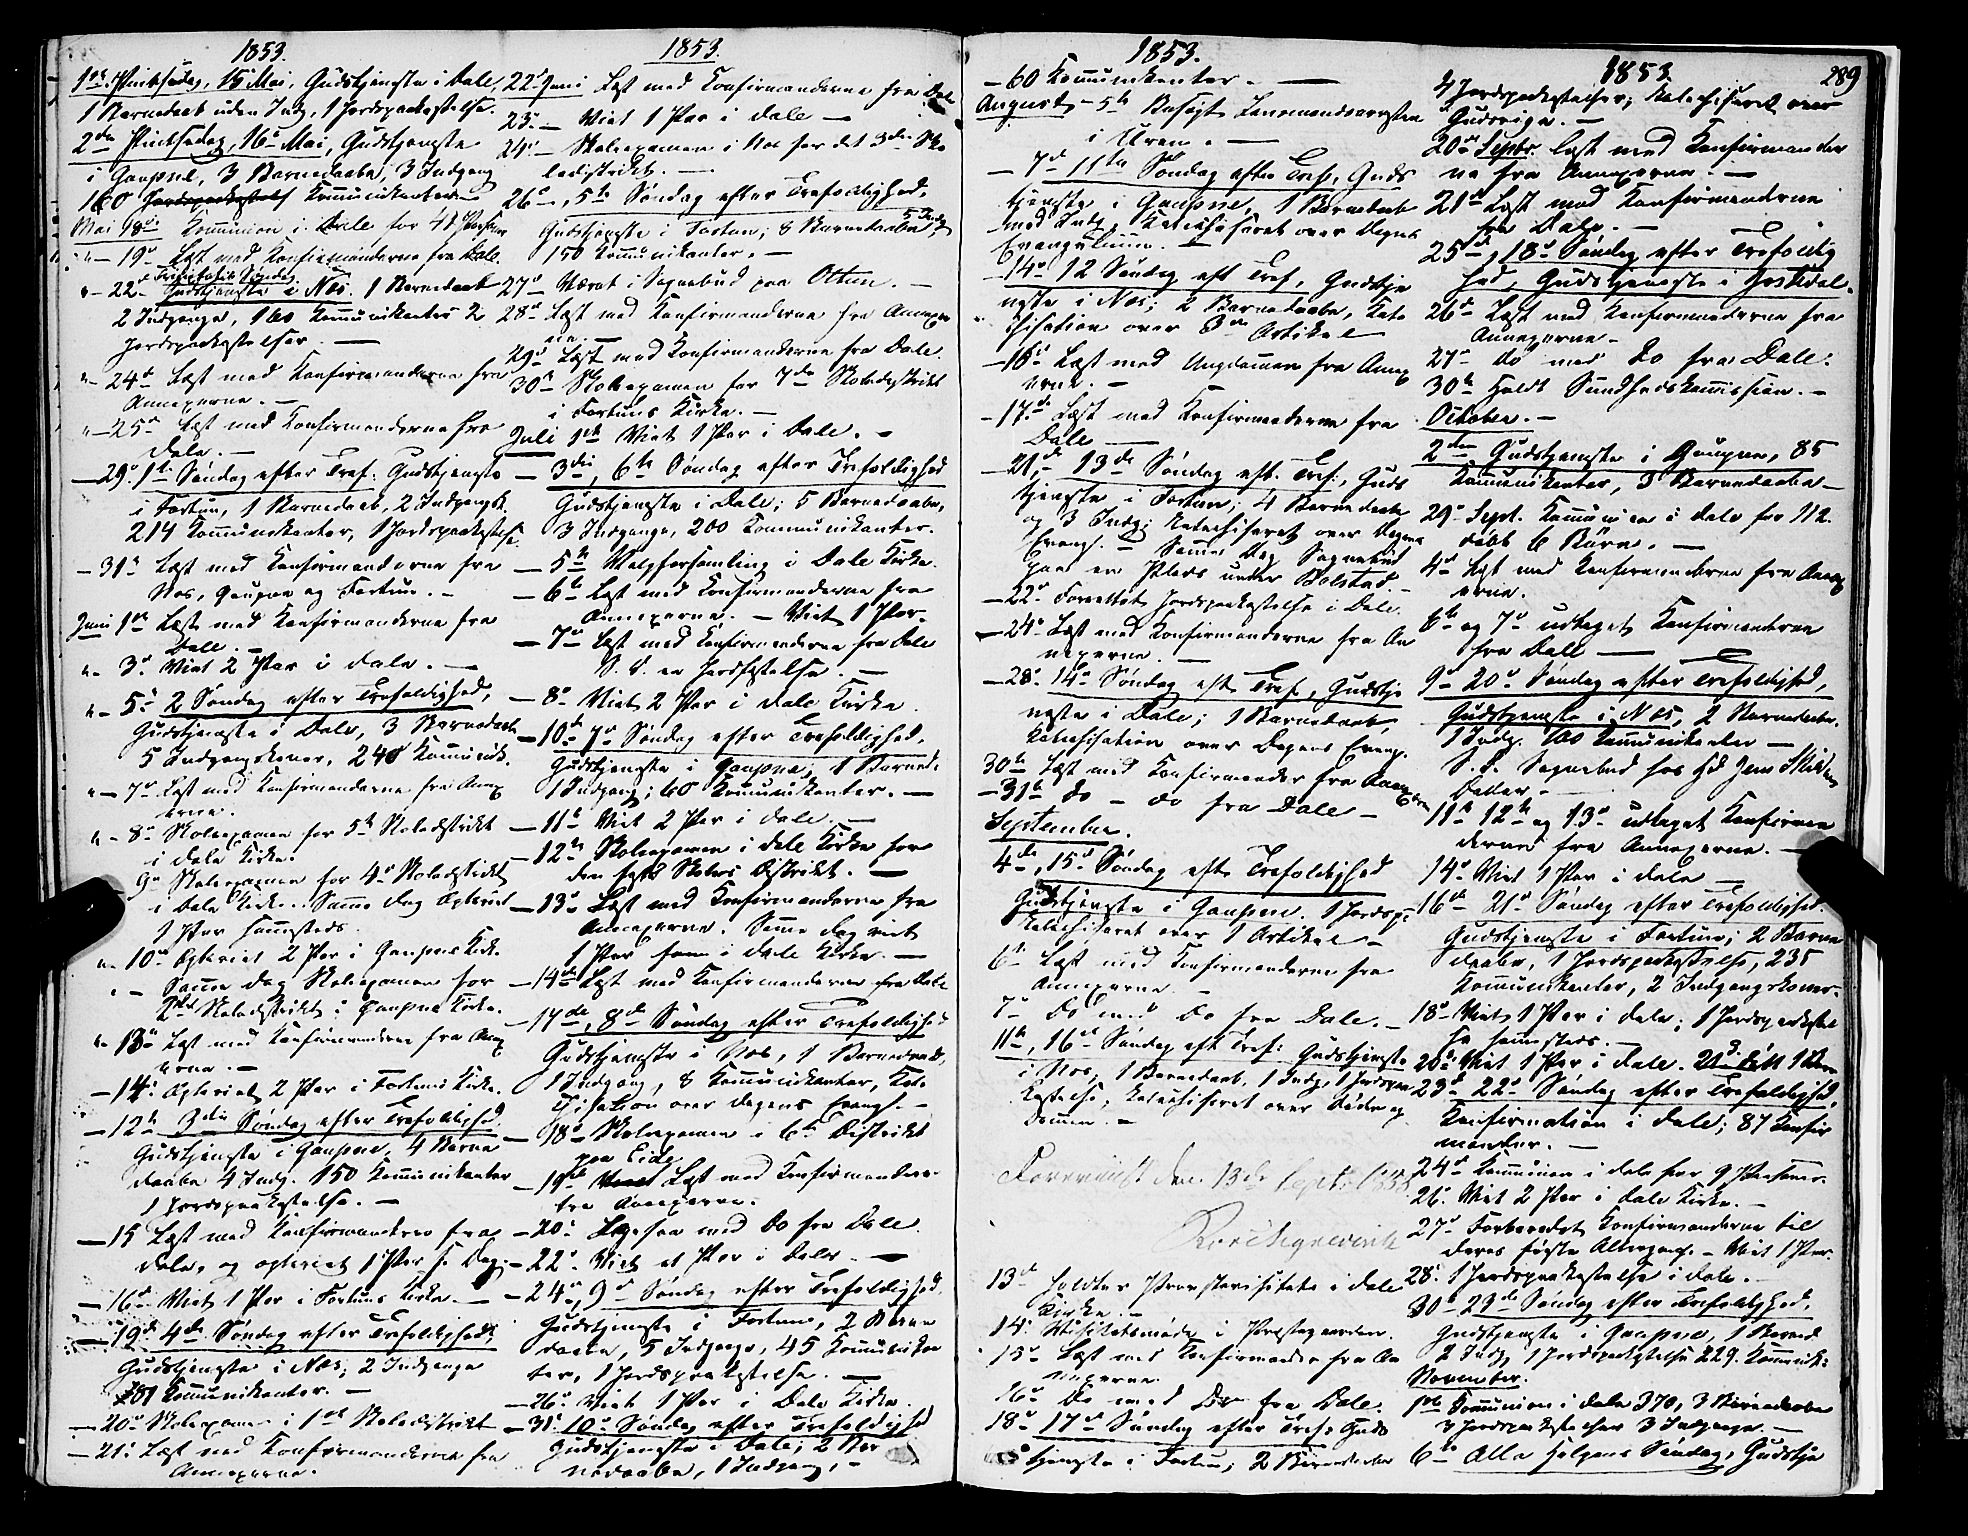 1853.
1ste Pintsedag, 15 Mai, Gudstjeneste i Dale,
1 Barnedaab uden Indg, 1 Jordspaakastelse.
2den Pintsedag, 16de Mai, Gudstjeneste
i Gaupne, 3 Barnedaabe, 3 Indgang
160 Kommunikanter
Mai 18de Kommunion i Dale for 48 Personer
"– 19de Læst med Konfirmanderne fra Dale.
Trinitatis Søndag
"– 22de Gudstjeneste i Næs. 1 Barnedaab
2 Indgange, 160 Kommunikanter 2
Jordspaakastelser. –
"– 24de Læst med Konfirmanderne fra
Annexerne. –
"– 25de Læst med Konfirmanderne fra
Dale. –
– 29de 1ste Søndag efter Tref: Gudstjeneste
i Fortun, 1 Barnedaab, 2 Indgangsk.
214 Kommunikanter, 1 Jordspaakastelse.
– 31te Læst med Konfirmanderne fra
Næs, Gaupne og Fortun. –
Juni 1ste Læst med Konfirmanderne fra
Dale. –
"– 3de Viet 2 Par i Dale. –
"– 5te 2 Søndag efter Trefoldighed,
Gudstjeneste i Dale, 3 Barnedaabe
5 Indgangskoner, 240 Kommunik.
"– 7de Læst med Konfirmanderne fra Annex
erne.
"– 8de Skoleexamen for 5te Skoledistrikt
i Dale Kirke.
9de Skoleexamen for 4de Skoledistrikt
i Dale Kirke. Samme Dag Copuleret
1 Par sammesteds.
"– 10de Copuleret 2 Par i Gaupne Kirke.
"– Samme Dag Skoleexamen for
2det Skoledistrikt i Gaupne Kirke.
"– 13de Læst med Konfirmanderne fra Annex
erne. –
– 14de Copuleret 2 Par i Fortuns Kirke.
– 12te 3die Søndag efter Trefoldighed.
Gudstjeneste i Gaupne, 4 Barne
daabe 4 Indg. 150 Kommunikanter
1 Jordspaakastelse. –
– 15 Læst med Konfirmanderne fra
Dale, og copuleret 1 Par s. Dag. –
– 16de Viet 1 Par i Fortuns Kirke. –
– 19de 4de Søndag efter Trefoldighed.
Gudstjeneste i Næs; 2 Indgange
101 Kommunikanter. –
– 20de Skoleexamen i 1ste Skoledistrikt
– 21de Læst med Konfirmanderne fra
Annexerne.
1853.
22de Juni Læst med Konfirmanderne fra Dale
23de – Viet 1 Par i Dale –
24de – Skoleexamen i Næs for det 3die Sko
ledistrikt. –
26de –, 5te Søndag efter Trefoldighed,
Gudstjeneste i Fortun; 8 Barnedaabe, 5 Indg.
150 Kommunikanter. –
27de Været i Sognebud paa Ottun. –
28de Læst med Konfirmanderne fra Annexer
ne. –
29de Læst med Konfirmanderne fra Dale.
30te Skoleexamen for 7de Skoledistrikt
i Fortuns Kirke. –
Juli 1ste Viet 1 Par i Dale. –
– 3die, 6te Søndag efter Trefoldighed
Gudstjeneste i Dale; 5 Barnedaabe,
3 Indgange, 200 Kommunikanter.
– 5te Valgforsamling i Dale Kirke.
– 6te Læst med Konfirmanderne fra
Annexerne. – Viet 1 Par. –
– 7de Læst med Konfirmanderne fra Dale
S. D. en Jordfæstelse. –
– 8de Viet 2 Par i Dale Kirke.
– 10de 7de Søndag efter Trefoldighed.
Gudstjeneste i Gaupne, 1 Barned.
1 Indgang; 60 Kommunikanter. –
– 11te Viet 2 Par i Dale. –
– 12te Skoleexamen i Dale Kirke for
den faste Skoles Distrikt. –
– 13de Læst med Konfirmanderne fra
Annexerne. Samme Dag viet
1 Par i Dale Kirke. –
– 14de Læst med Konfirmanderne fra Dale
– 17de, 8de Søndag efter Trefoldighed
Gudstjeneste i Næs, 1 Barnedaab,
1 Indgang, 8 Kommunikanter, Kat
chisation over Dagens Evangl. –
– 18de Skoleexamen i 6te Distrikt
paa Eide
– 19de Læst med Konfirmanderne
fra Annexerne.
– 20de Læsen med Do fra Dale.
– 22de Viet et Par i Dale. –
– 24de, 9de Søndag efter Trefoldighed.
Gudstjeneste i Fortun, 2 Barne
daabe, 5 Indgange, 45 Kommunikan
ter, 1 Jordspaakastelse. –
– 26de Viet 1 Par i Dale Kirke.
– 31te 10de Søndag efter Trefoldighed
Gudstjeneste i Dale; 2 Bar
nedaabe, 1 Indgang, –
1853.
– 60 Kommunikanter. –
August – 5te Besøgt Lensmandsarresten
i Uren. –
– 7de 11te Søndag efter Tref, Guds
tjeneste i Gaupne, 1 Barnedaab
med Indg, Katechiseret over Dagens
Evangelium. –
14de 12 Søndag eft Tref, Gudstje
neste i Næs; 2 Barnedaabe, Kate
chisation over 3die Artikel
– 16de Læst med Ungdommen fra Annex
erne. –
– 17de Læst med Konfirmanderne fra
Dale –
– 21de – 13de Søndag eft. Tref:, Guds
tjeneste i Fortun; 4 Barnedaabe
og 3 Indg; Katechiseret over Dagens
Evangl. – Samme Dag Sognebud
paa en Plads under Bolstad. –
– 22de Forrettet Jordspaakastelse i Dale.
– 24de Læst med Konfirmanderne fra An
nexerne. –
– 28de 14de Søndag efter Tref, Gudstje
neste i Dale; 1 Barnedaab,
Katechisation over Dagens Evang.
30te Læst med Konfirmander fra Annexerne
– 31te do – do fra Dale –
September.
4de, 15de Søndag eft Trefoldighed
Gudstjeneste i Gaupne. 1 Jordsp:
Katechiseret over 1 Artikel –
6te Læst med Konfirmanderne fra
Annexerne –
7de Do med Do fra Dale. –
11te, 16de Søndag eft Tref: Gudstjeneste
i Næs, 1 Barnedaab, 1 Indg, 1 Jordspaa
kastelse, Katechiseret over Daaben
Foreviist den 13de Septbr 1853
13de holdtes Provstevisitats i Dale
Kirke. –
14de i Præstegaarden.
15de Læst med Konfirmander fra An
nexerne
16de Do med Do fra Dale.
18de 17de Søndag efter Tref: Guds
tjeneste i Fortun; 2 Barnedaabe
1853.
289
4 Jordspaakastelser; Katechiseret over
20de Septbr. læst med Konfirmander
ne fra Annexerne. –
21de Læst med Konfirmanderne
fra Dale. –
25de, 18de Søndag efter Trefoldig
hed, Gudstjeneste i Jostedal.
26de Læst med Konfirmanderne fra
Annexerne –
27de do med Do fra Dale.
30te Holdt Sundhedskommission. –
October. –
2den Gudstjeneste i Gaupne, 85
Kommunikanter, 3 Barnedaabe –
29de Sept. Kommunion i Dale for 112.
døbt 6 Børn. –
4de Læst med Konfirmanderne fra Annex
erne.
6te og 7de udtaget Konfirmanderne
fra Dale –
9de 20de Søndag efter Trefoldighed,
Gudstjeneste i Næs, 2 Barnedaabe.
1 Indg. 100 Kommunikanter –
S. D. Sognebud hos Jens
11te 12te og 13de udtaget Konfirman
derne fra Annexerne. –
14de Viet 1 Par i Dale –
16de 21de Søndag efter Trefoldighed.
Gudstjeneste i Fortun; 2 Barne
daabe, 1 Jordspaakastelse, 235
Kommunikanter, 2 Indgangskoner.
18de Viet 1 Par i Dale; 1 Jordspaakastel
se sammesteds. –
20de Viet 1 Par i Dale.
23de 22de Søndag efter Trefoldighed,
Konfirmation i Dale; 87 Konfir
mander. –
24de Kommunion i Dale for 9 Personer.
26de Viet 2 Par i Dale Kirke. –
27de Forberedet Konfirmanderne til
deres første Altergang. – Viet 1 Par.
28de 1 Jordspaakastelse i Dale. –
30te 23de Søndag efter Trefoldighed.
Gudstjeneste i Gaupne, 1 Barned
2 Indg, 1 Jordspaakastelse 229. Kommunik:
November.
1ste Kommunion i Dale 370, 3 Barnedaabe
Jordspaakastelser 3 Indgange. –
6te Alle Helgens Søndag, Gudstje